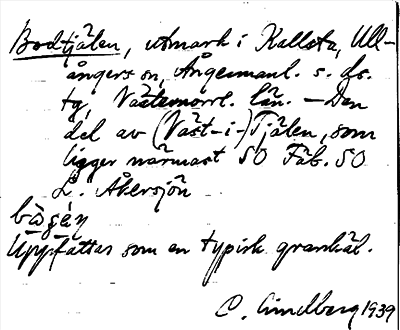 Bodtjälen, utmark i Kallsta, Ull-
ångers sn, Ångermanl. s. ds.
tg, Västernorrl. län. – Den
del av (Väst-i-)Tjälen, som
ligger närmast SO Fäb. SO
L. Åkersjön
Uppfattas som en typisk granhäl.
C. Lindberg 1939